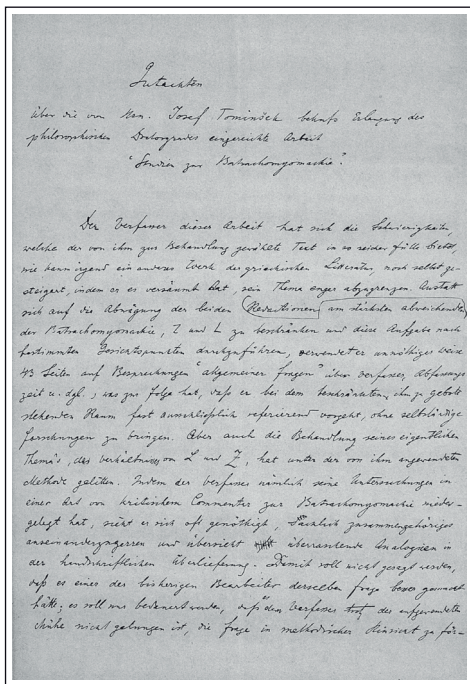 Gutachten
über die von Kan. Josef Tominšek behufs Erlangung des
philosophischen Doctorgrades eingereichte Arbeit
"Studien zur Batrachomyomachie".
Der Verfasser dieser Arbeit hat sich die Schwierigkeiten,
welche der von ihm zur Behandlung gewählte Text in so reicher Fülle bietet,
wie kaum irgend ein anderes Werk der griechischen Literatur, noch selbst ge-
steigert, indem er es versäumt hat, sein Thema enger abzugrenzen. Anstatt
sich auf die Abwägung der beiden Redactionen am stärksten abweichenden
der Batrachomyomachie, Z und L zu beschränken und diese Aufgabe nach
bestimmten Gesichtspuncten durchzuführen, verwendet er unnöthiger weise
43 Seiten auf Besprechungen "allgemeiner Fragen" über Verfasser, Abfassungs-
zeit u. dgl., was zur Folge hat, daß er bei dem beschränkten, ihm zu gebote
stehenden Raum fast ausschließlich referierend vorgeht, ohne selbständige
Forschungen zu bringen. Aber auch die Behandlung seines eigentlichen
Themas, des Verhältnisses von L und Z, hat unter der von ihm angewendeten
Methode gelitten. Indem der Verfasser nämlich seine Untersuchungen in
einer Art von kritischem Commentar zur Batrachomyomachie nieder-
gelegt hat, sieht er sich oft genöthigt, Sachlich zusammengehöriges
auseinanderzuzerren und übersieht überraschende Analogien in
der handschriftlichen Überlieferung. Damit soll nicht gesagt werden,
daß es einer der bisherigen Bearbeiter derselben Frage besser gemacht
hätte; es soll nur bedauert werden, daß es dem Verfasser trotz der aufgewendeten
Mühe nicht gelungen ist, die Frage in methodischer Hinsicht zu för-